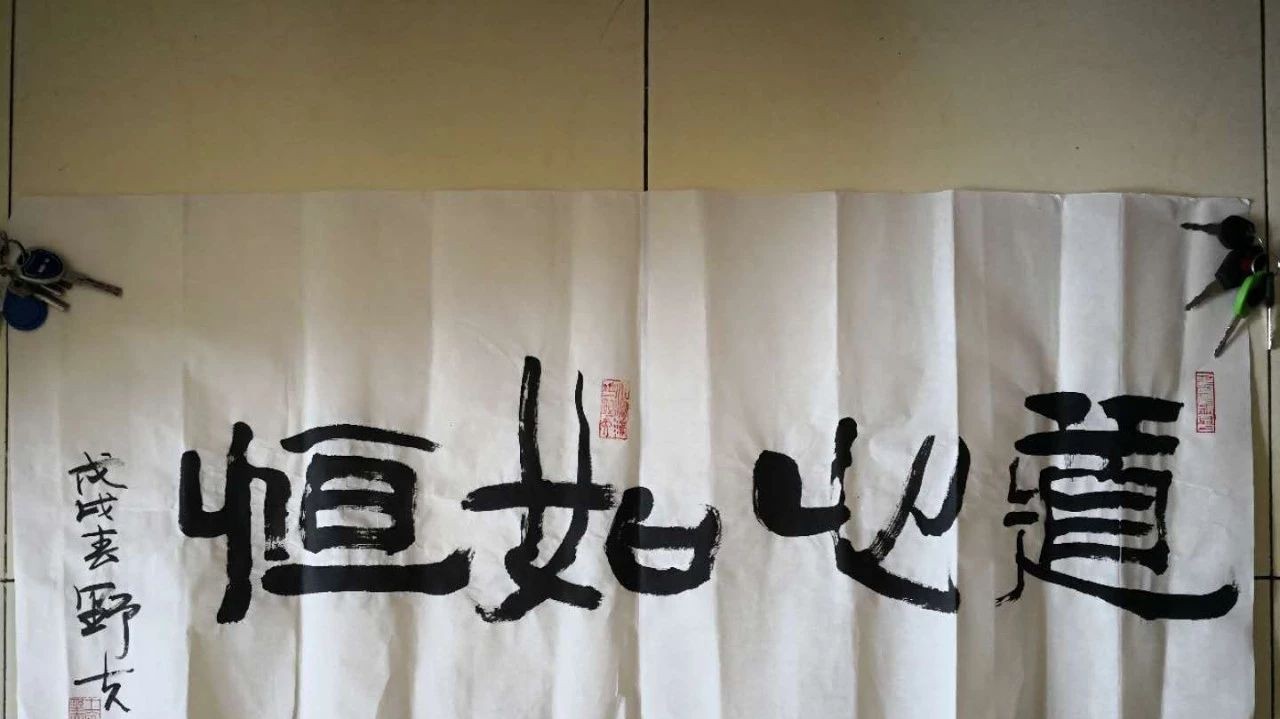 道心如恒
戊戌春 野夫